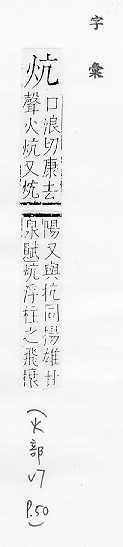 字彙
炕
口浪切康去
聲火炕又炕
陽又與抗同揚雄甘
泉賦炕浮柱之飛榱
(火部 v7 P.50)